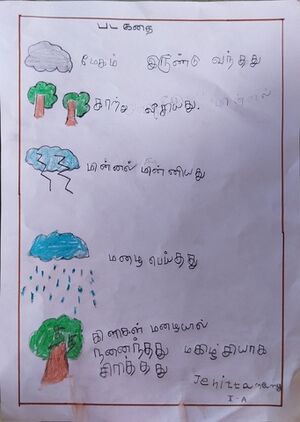 படகதை
மேகம் இருண்டு வந்தது
வீசியது.
மின்னல் மின்னியது
மழை பெய்தது
கிளிகள் மழையால்
நனைந்தது மகிழ்சியாக
சிரித்தது
I-A